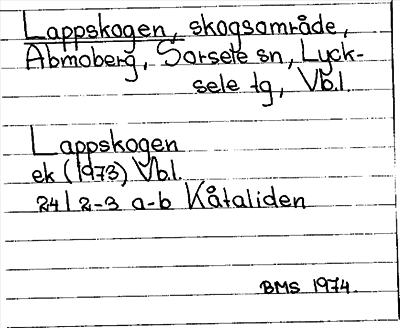 Lappskogen, skogsområde,
Abmoberg, Sorsele sn, Lyck-
sele tg, Vb.l.
Lappskogen
ek (1973) Vb.l.
24 I 2-3 a-b Kåtaliden
BMS 1974.